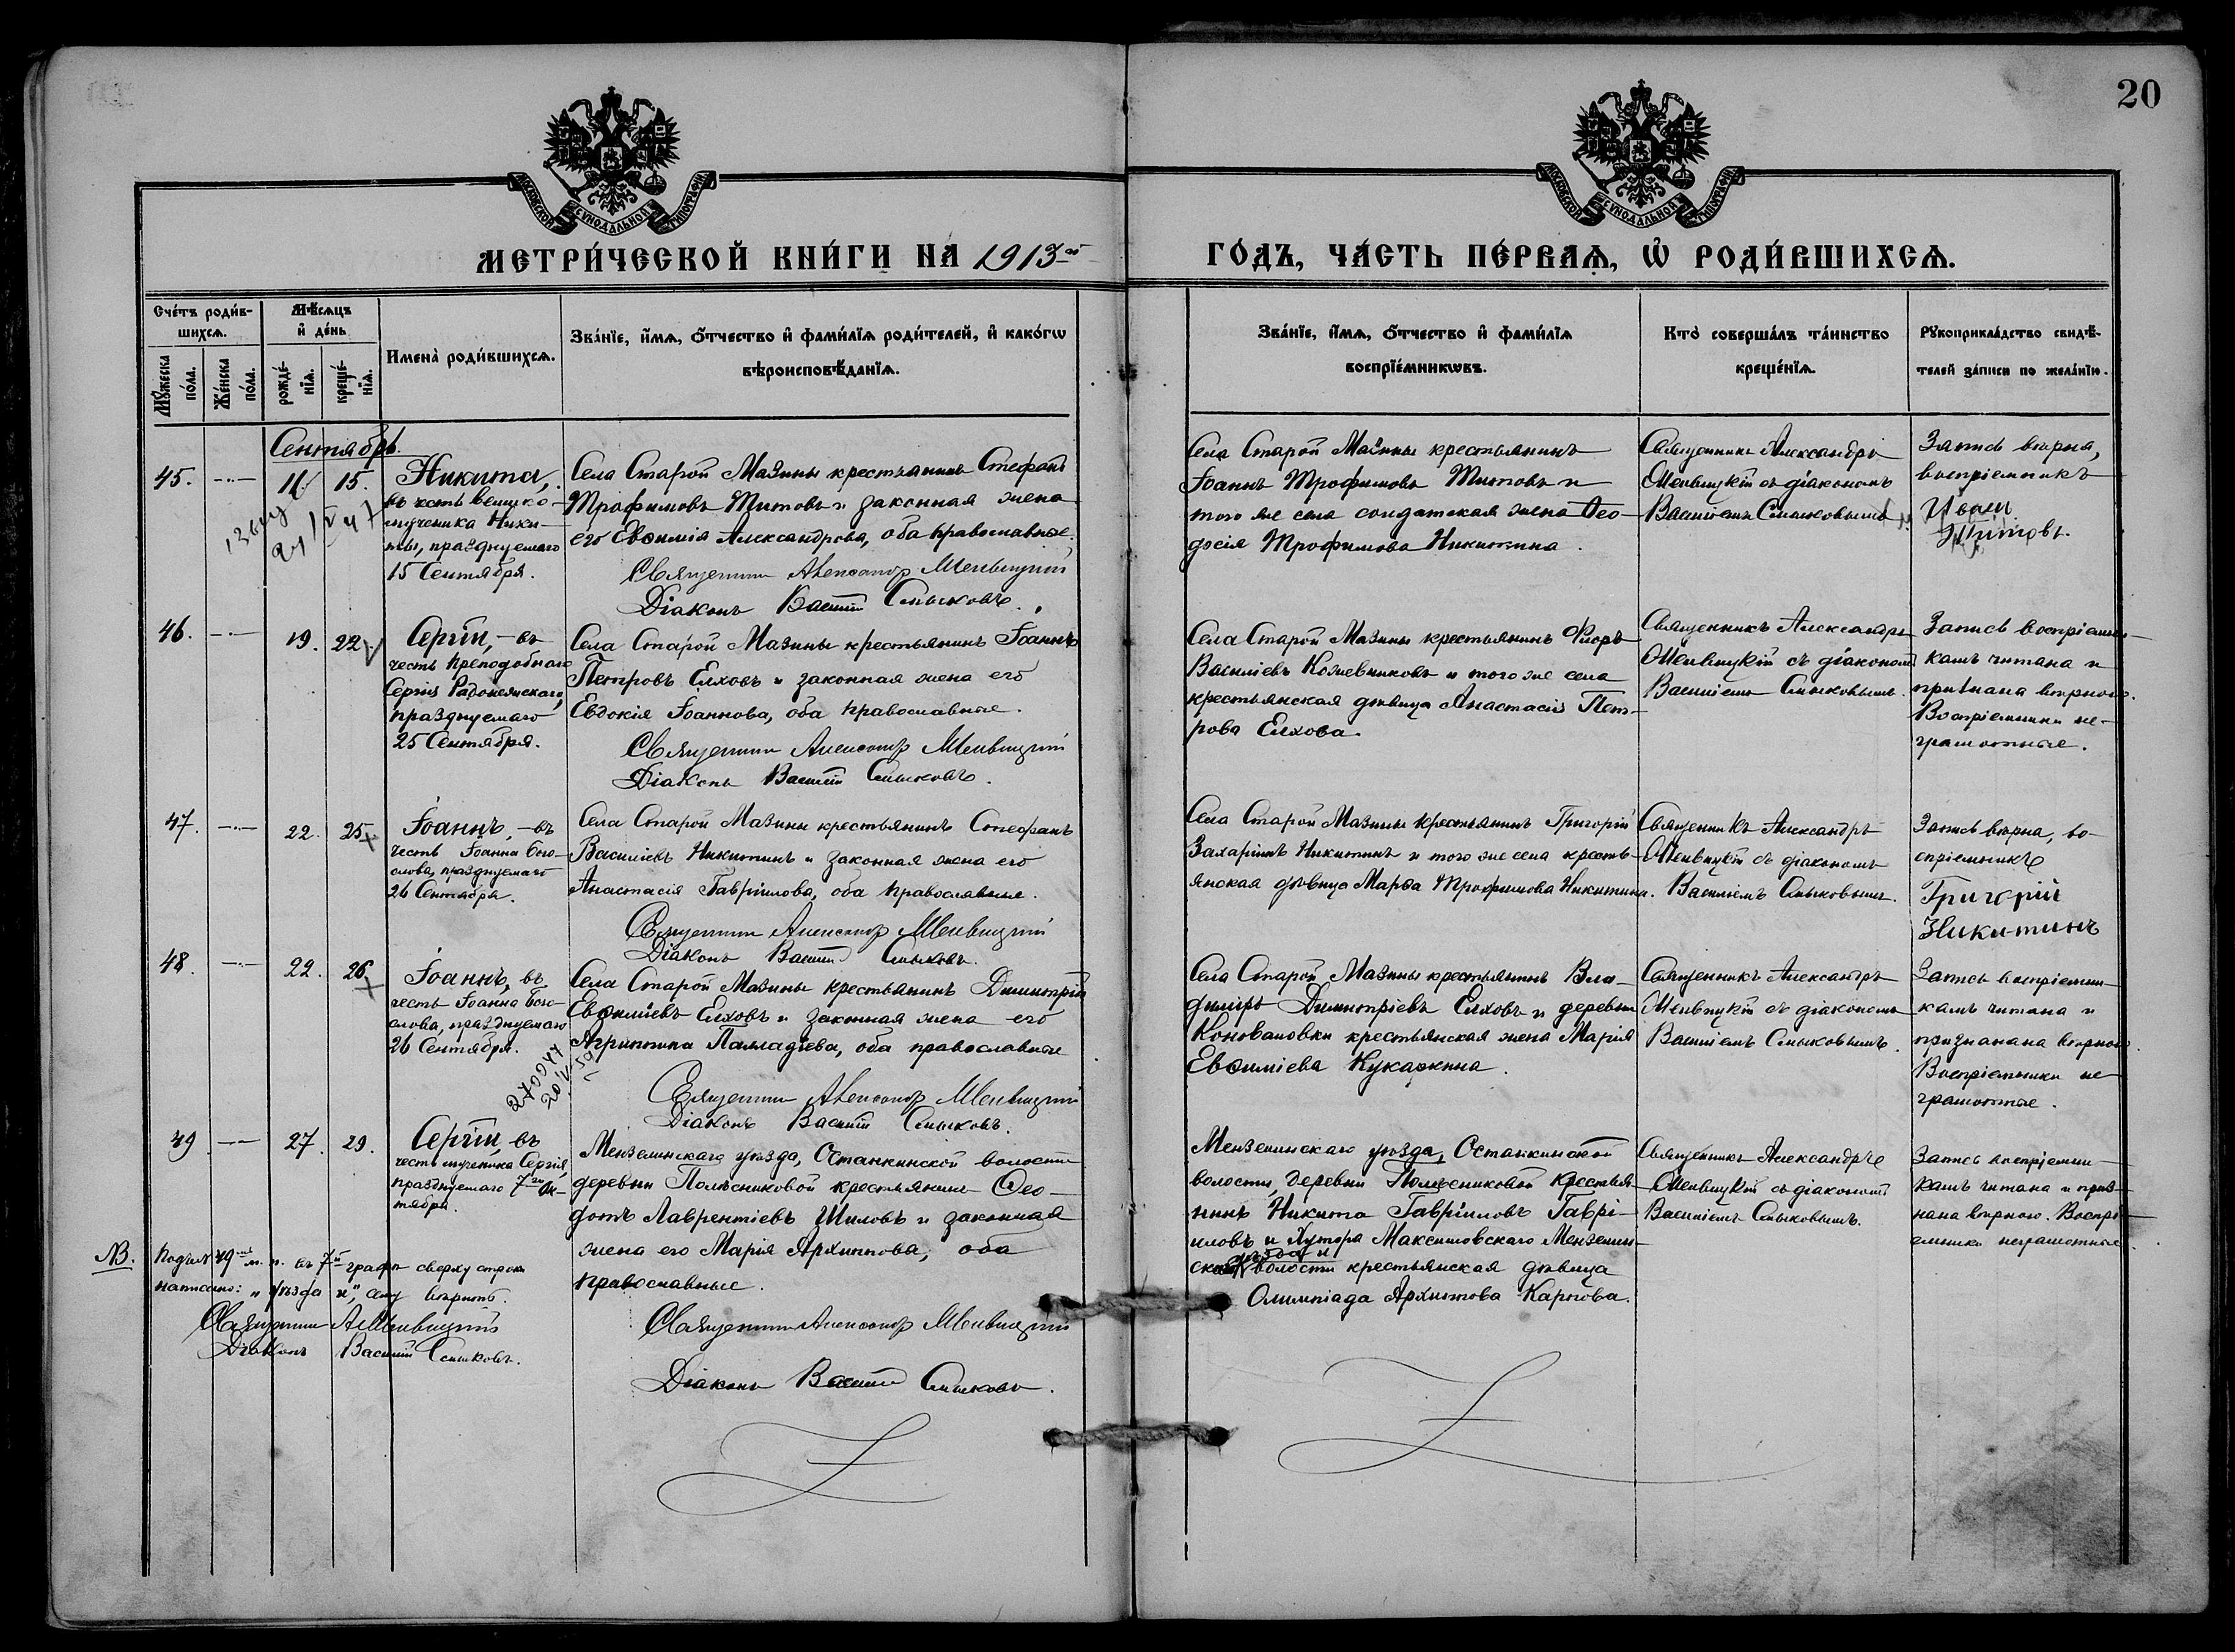 20
МОСКОВСКОЙ СѴНОДАЛЬНОЙ ТИПОГРАФІИ
МОСКОВСКОЙ СѴНОДАЛЬНОЙ ТИПОГРАФІИ
МЕТРИ́ЧЕСКОЙ КНИ́ГИ НА 1913-й
ГО́ДЪ, ЧА́СТЬ ПЕ́РВАѦ, Ѡ҆ РОДИ́ВШИХСѦ.
Сче́тъ роди́в-
шихсѧ.
Мѣ́сѧцъ
и҆ де́нь
Мꙋ́жеска
по́ла.
Же́нска
по́ла.
рожде́-
нїѧ.
креще́-
нїѧ.
Имена̀ роди́вшихсѧ.
Зва́нїе, и҆́мѧ, ѻ҆́тчество и҆ фами́лїѧ роди́телей, и҆ како́гѡ
вѣроисповѣ́данїѧ.
Зва́нїе, и҆́мѧ, ѻ҆́тчество и҆ фами́лїѧ
воспрїе́мникѡвъ.
Кто̀ соверша́лъ та́инство
креще́нїѧ.
Рꙋкоприкла́дство свидѣ́-
телей за́писи по жела́нїю.
Сентябрь.
45. 11. 15.
Никита,
въ честь велико-
мученика Ники-
ты, празднуемаго
15 Сентября.
Села Старой Мазины крестьянинъ Стефанъ
Трофимовъ Титовъ и законная жена
его Евѳимія Александрова, оба православные.
Священникъ Александръ
Діаконъ Василій Смысковъ.
Села Старой Мазины крестьянинъ
Іоаннъ Трофимовъ Титовъ и
того же села солдатская жена Ѳео-
досія Трофимова Никитина.
Священникъ Александръ
съ діакономъ
Василіемъ Смысковымъ
Запись вѣрна,
воспріемникъ
Иванъ
Титовъ.
46. 19. 22.
Сергій, – въ
честь преподобнаго
Сергія Радонежскаго,
празднуемаго
25 Сентября.
Села Старой Мазины крестьянинъ Іоаннъ
Петровъ Елховъ и законная жена его
Евдокія Іоаннова, оба православные.
Священникъ Александръ
Діаконъ Василій Смысковъ.
Села Старой Мазины крестьянинъ Флоръ
Василіевъ Кожевниковъ и того же села
крестьянская дѣвица Анастасія Пет-
рова Елхова.
Священникъ Александръ
съ діакономъ
Василіемъ Смысковымъ.
Запись воспріемни-
камъ читана и
признана вѣрною.
Воспріемники не-
грамотные.
47. 22. 25
Іоаннъ, – въ
честь Іоанна Бого-
слова, празднуемаго
26 Сентября.
Села Старой Мазины крестьянинъ Стефанъ
Василіевъ Никитинъ и законная жена его
Анастасія Гавріилова, оба православные.
Священникъ Александръ
Діаконъ Василій Смысковъ.
Села Старой Мазины крестьянинъ Григорій
Захаріинъ Никитинъ и того же села кресть-
янская дѣвица Марѳа Трофимова Никитина.
Священникъ Александръ
съ діакономъ
Василіемъ Смысковымъ.
Запись вѣрна, во-
спріемникъ
Григорій
Никитинъ
48. 22. 26
Іоаннъ, въ
честь Іоанна Бого-
слова, празднуемаго
26 Сентября.
Села Старой Мазины крестьянинъ Димитрій
Евѳиміевъ Елховъ и законная жена его
Агриппина Палладіева, оба православные
Священникъ Александръ
Діаконъ Василій Смысковъ.
Села Старой Мазины крестьянинъ Вла-
димиръ Димитріевъ Елховъ и деревни
Коноваловки крестьянская жена Марія
Евѳиміева Кукаркина.
Священникъ Александръ
съ діакономъ
Василіемъ Смысковымъ.
Запись воспріемни-
камъ читана и
признанана вѣрною.
Воспріемники не-
грамотные.
49 27. 29.
Сергій, въ
честь мученика Сергія,
празднуемаго 7-го Ок-
тября.
Мензелинскаго уѣзда, Останкинской волости
деревни крестьянинъ Ѳео-
дотъ Лаврентіевъ Шиловъ и законная
жена его Марія Архиппова, оба
православные.
Священникъ Александръ
Діаконъ Василій Смысковъ.
Мензелинскаго уѣзда, Останкинской
волости, деревни крестья-
нинъ Никита Гавріиловъ Гаврі-
иловъ и Хутора Максимовскаго Мензелин-
уѣзда и
волости крестьянская дѣвица
Олимпіада Карпова.
Священникъ Александръ
съ діакономъ
Василіемъ Смысковымъ.
Запись воспріемни-
камъ читана и приз-
нана вѣрною. Воспрі-
емники неграмотные.
NB. Подъ № 49 м. п. въ 7-й графѣ сверху строки
написано: „уѣзда и", вѣрить.
Священникъ
Діаконъ Василій Смысковъ.